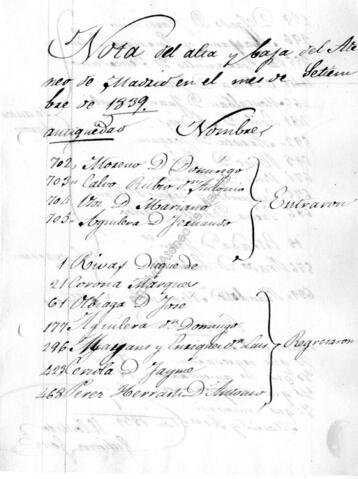 Nota del alta y baja del Ate
neo de Madrid en el mes de Setiem
bre de 1839.
antiguedad Nombres
702, Moreno D. Domingo
703, Calvo Rubio Dn. Antonio
704 D. Mariano
705, Aguilera D. Fernando
Entraron
1 Rivas Duque de
21 Corona Marques
61 Olózaga D. José
177 Aguilera Dn. Domingo
296 y Enriquez Dn. Luis
427 D. Jayme
468 Perez Herrasti D. Antonio
Regresaron